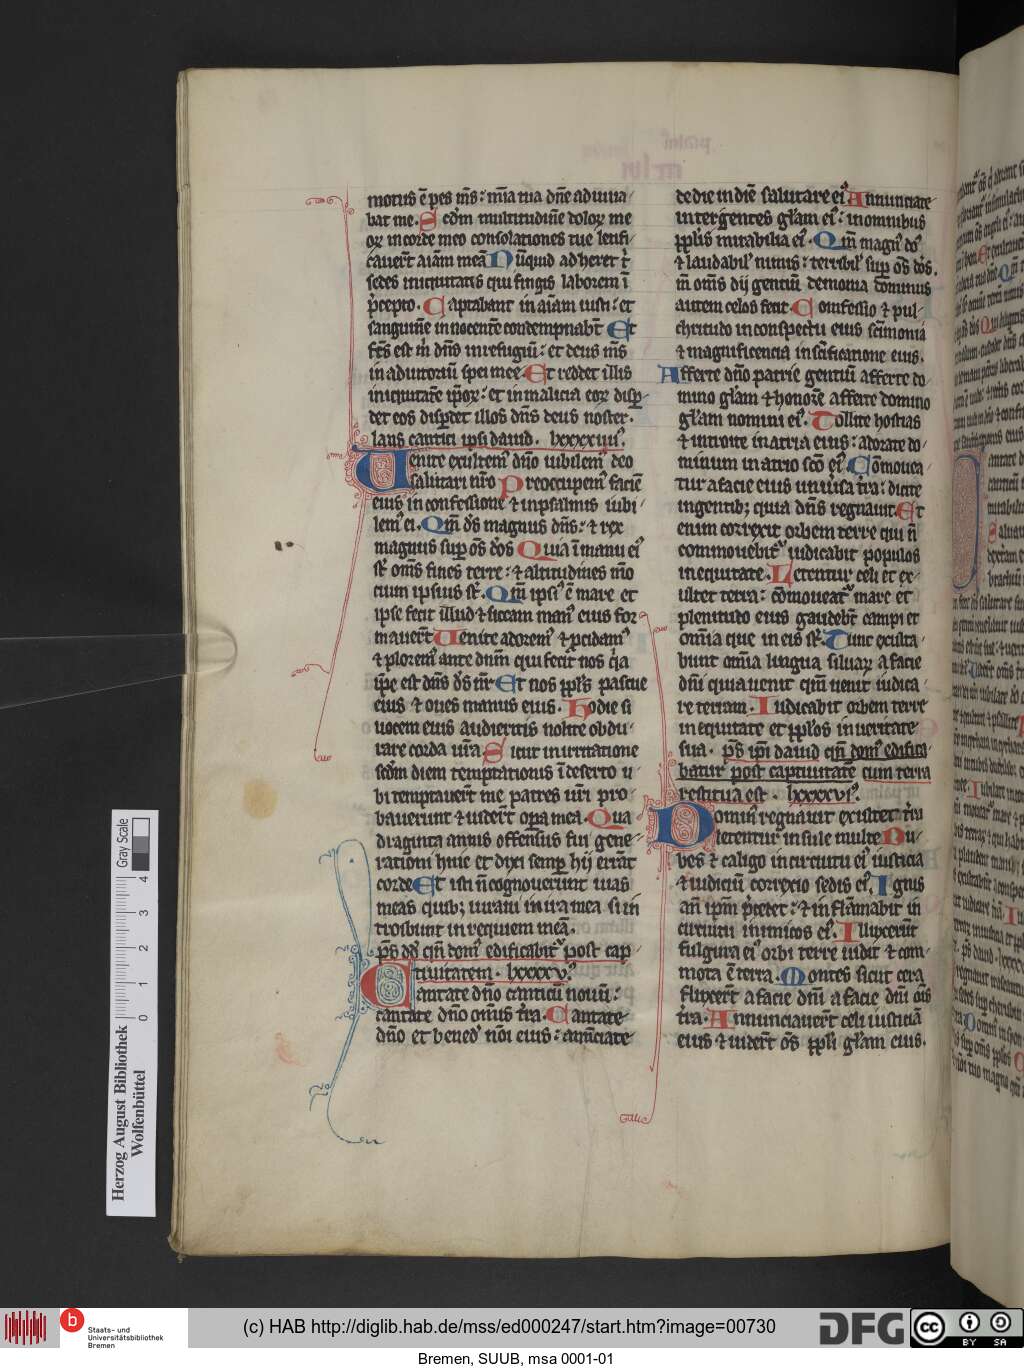 motus ē pes ms̄: mīa tua dn̄e adiuua
bat me. Scd̄m multitudinē doloꝝ me
oꝝ in corde meo consolationes tue letifi
cauert̄ aīam meā Nūquid adheret t̄
sedes iniquitatis qui fingis laborem ī
p̄cepto. Captabunt in aīam iusti: et
sanguinē innocentē condempnabt̄ Et
fc̄s est m̄ dn̄s in refugiū: et deus ms̄
in adiutoriū spei mee. Et reddet illis
iniquitatē ip̄oꝝ: et in malicia eoꝝ disp̄
det eos disp̄det illos dn̄s deus noster.
laus cantici ipsi dauid. lxxxxiiii.
Uenite exultem᷒ dn̄o iubilem᷒ deo
salutari nr̄o Preoccupem᷒ faciē
eius in confessione ⁊ in psalmis iubi
lem᷒ ei. Qm̄ ds̄ magnus dn̄s: ⁊ rex
magnus sup̄ os̄ dōs Quia ī manu ei᷒
st̄ om̄s fines terre: ⁊ altitudines mō
tium ipsius st̄. Qm̄ ipsi᷒ ē mare et
ipse fecit illud ⁊ siccam man᷒ eius for
mauert̄ Uenite adorem᷒ ⁊ p̄cidam᷒
⁊ plorem᷒ ante dn̄m qui fecit nos q̄ia
ip̄e est dn̄s ds̄ nr̄ Et nos ppl̄s pascue
eius ⁊ oues manus eius. Hodie si
uocem eius audieritis nolite obdu
rare corda ur̄a Sicut in irritatione
scd̄m diem temptationis ī deserto u
bi temptauert̄ me patres ur̄i pro
bauerunt ⁊ uidert̄ op̄a mea. Qua
draginta annis offensus fui gene
rationi huic et dixi semp̄ hij errāt
corde Et isti n̄ cognouerunt uias
meas quibꝫ iuraui in ira mea si in
troibunt in requiem meā.
ps̄ dd̄ qn̄ dom᷒ edificabit᷒ post cap
tiuitatem. lxxxxv.
Cantate dn̄o canticū nouū:
cantate dn̄o omīs t̄ra. Cantate
dn̄o et bened᷒ nōi eius: anūciate
de die in diē salutare ei᷒ Annunciate
inter gentes gl̄am ei᷒: in omnibus
ppl̄is mirabilia ei᷒. Qm̄ magn᷒ dn̄s
⁊ laudabil᷒ nimis: terribil᷒ sup̄ os̄ dōs.
m̄ om̄s dij gentiū demonia dominus
autem celos fecit. Confessio ⁊ pul
chritudo in conspectu eius scīmonia
⁊ magnificencia in scīficatione eius.
Afferte dn̄o patrie gentiū afferte do
mino gl̄am ⁊ honorē afferte domino
gl̄am nomini ei᷒. Tollite hostias
⁊ introite in atria eius: adorate do
minum in atrio scō ei᷒. Cōmouea
tur a facie eius uniu̇sa t̄ra: dicite
in gentibꝫ quia dn̄s regnauit. Et
enim correxit orbem terre qui n̄
commouebit᷒ iudicabit populos
in equitate. Letentur celi et ex
ultet terra: cōmoueat᷒ mare et
plenitudo eius gaudebt̄ campi et
omīa que in eis st̄. Tunc exulta
bunt omīa lingna siluaꝝ a facie
dn̄i quia uenit qm̄ uenit iudica
re terram. Iudicabit orbem terre
in equitate et ppl̄os in ueritate
sua. ps̄ ip̄i dauid qn̄ dom᷒ edifica
batur post captiuitatē cum terra
restituta est. lxxxxvi.
Domin᷒ regnauit exultet t̄ra
letentur insule multe Nu
bes ⁊ caligo in circuitu ei᷒ iusticia
⁊ iudiciū correxio sedis ei᷒. Ignis
an̄ ip̄m p̄cedet: ⁊ inflāmabit in
circuitu inimicos ei᷒. Illuxerūt
fulgura ei᷒ orbi terre uidit ⁊ com
mota ē terra. Montes sicut cera
fluxert̄ a facie dn̄i a facie dn̄i oīs
t̄ra. Annunciauert̄ celi iusticiā
eius ⁊ uidert̄ os̄ ppl̄i gl̄am eius.
Herzog August Bibliothek
Wolfenbüttel
Gray Scale
0 1 2 3 4
b
Staats- und
Universitätsbibliothek
Bremen
(c) HAB http://diglib.hab.de/mss/ed000247/start.htm?image=00730
DFG
cc BY SA
Bremen, SUUB, msa 0001-01